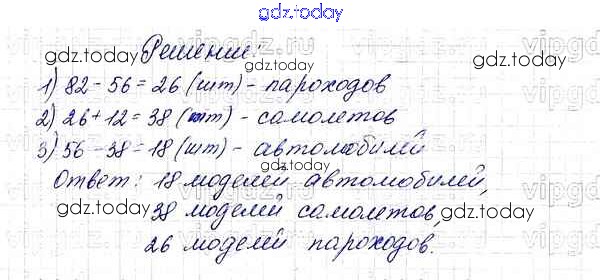 gdz.today
Решение:
gdz.today
gdz.today
1) 82 - 56 = 26 (шт) - пароходов
2) 26 + 12 = 38 (шт) - самолетов
3) 56 - 38 = 18 (шт) - автомобилей
gdz.today
gdz.today
Ответ: 18 моделей автомобилей,
gdz.today
38 моделей самолетов,
gdz.today
26 моделей пароходов.
gdz.today
gdz.today